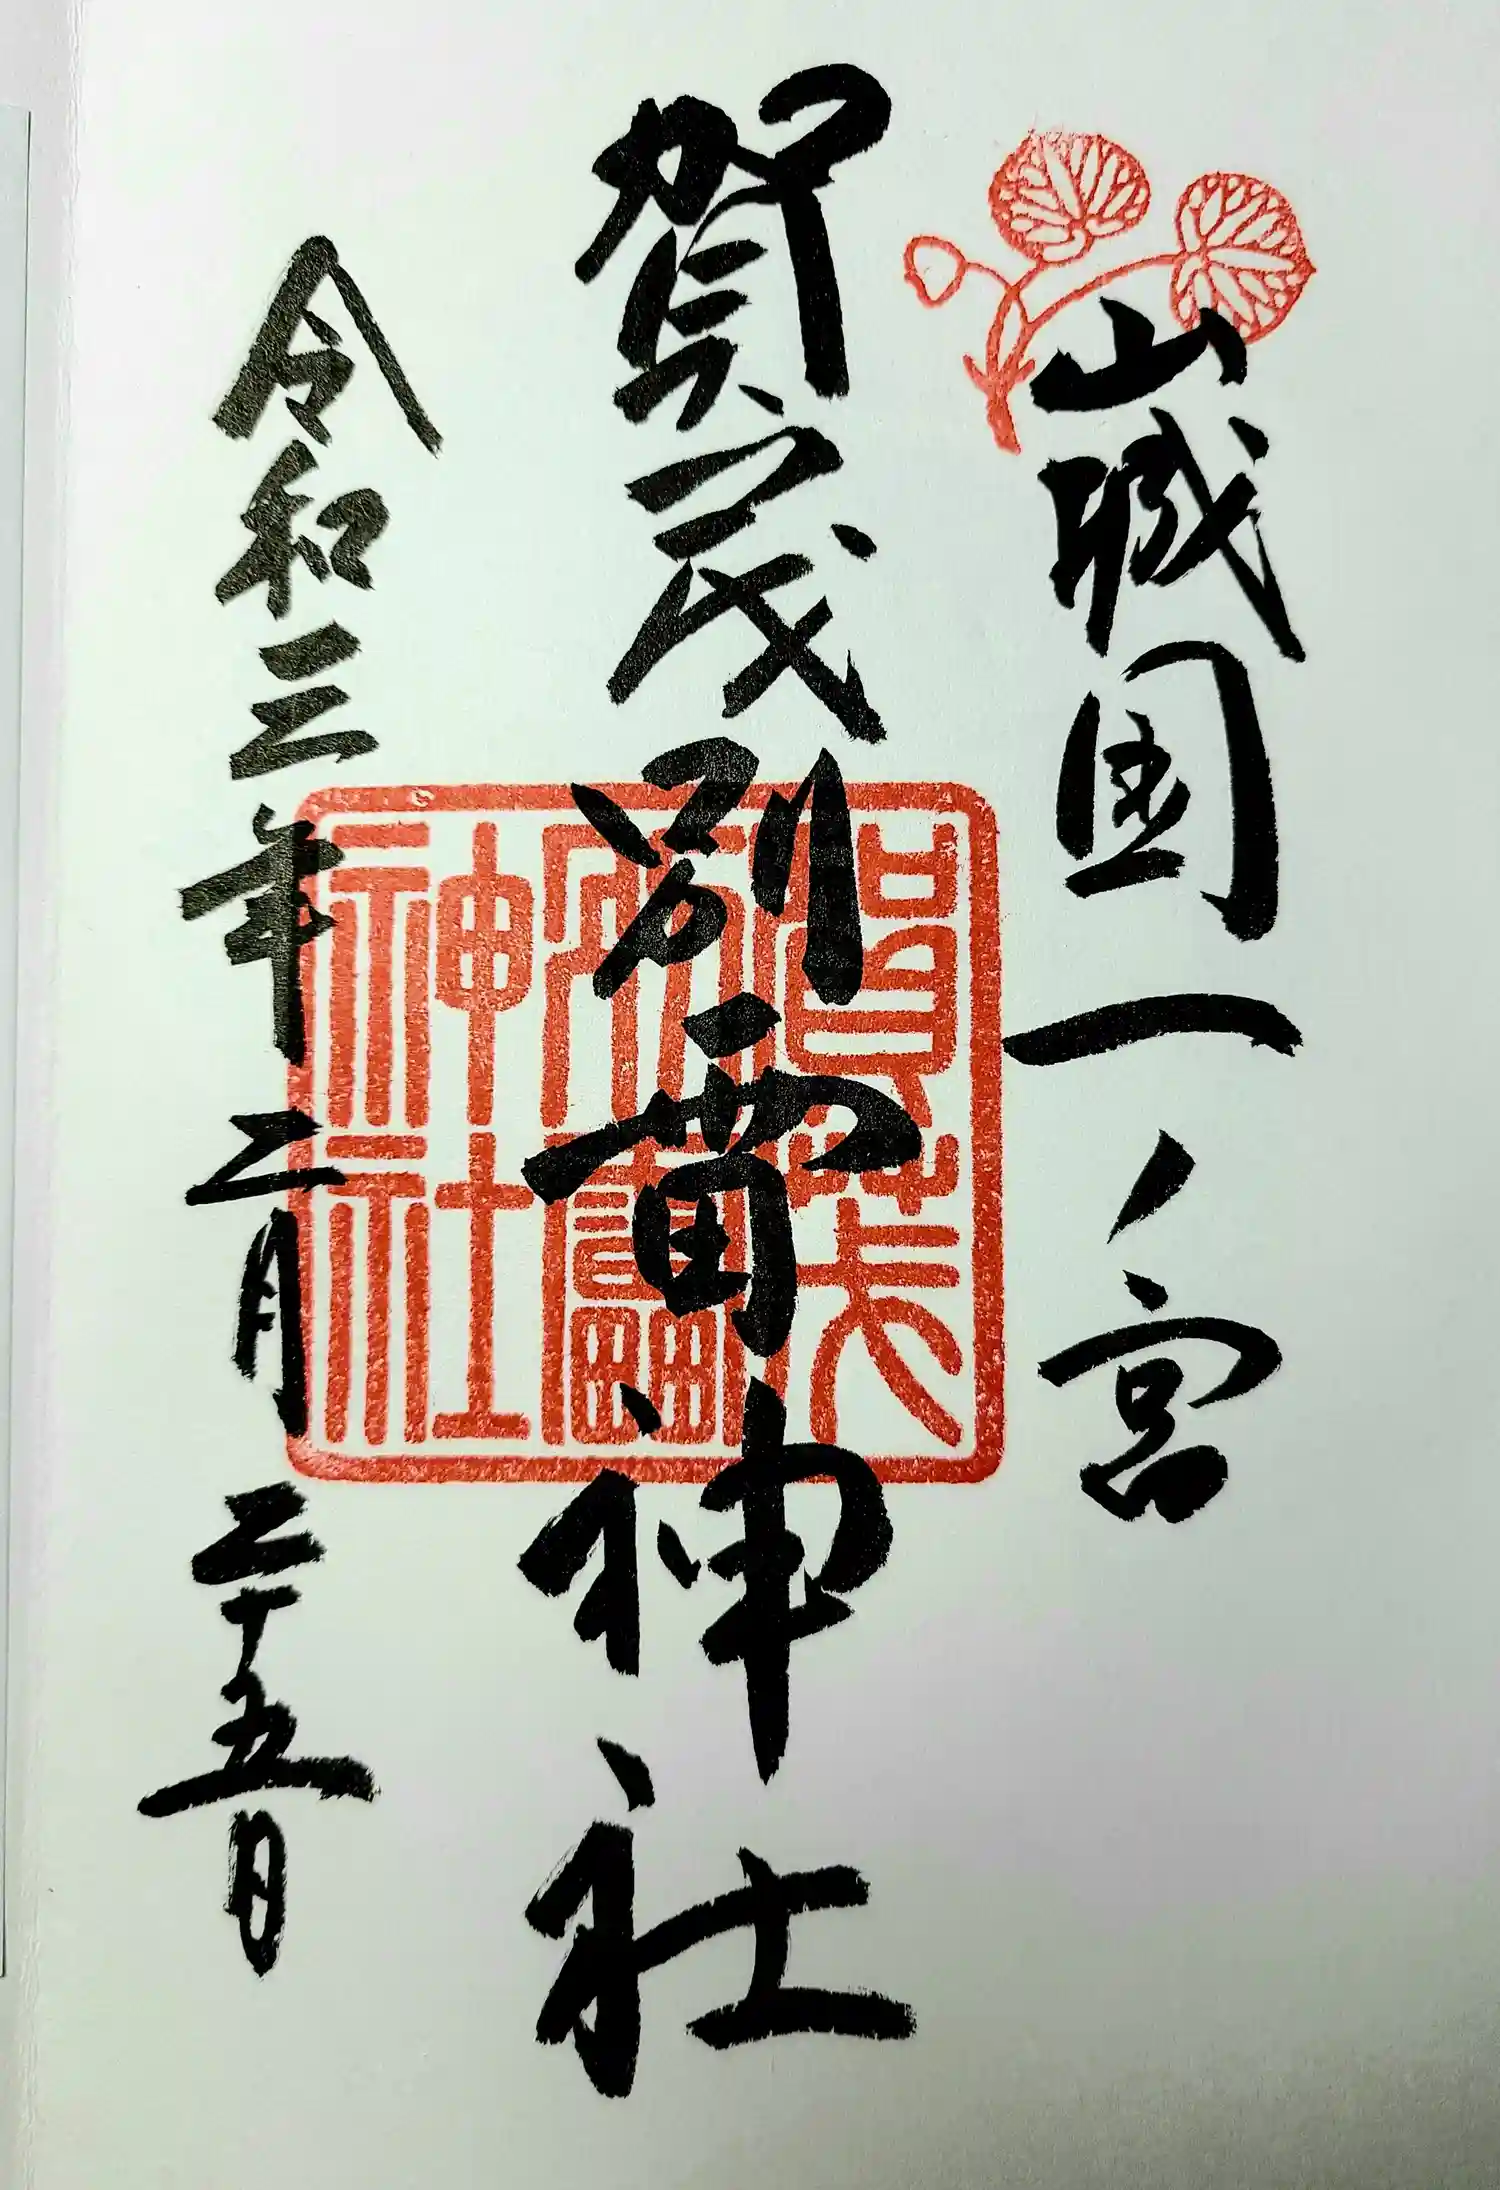 山城国一ノ宮
賀茂別雷神社
令和三年二月二十五日
賀茂
別雷
神社